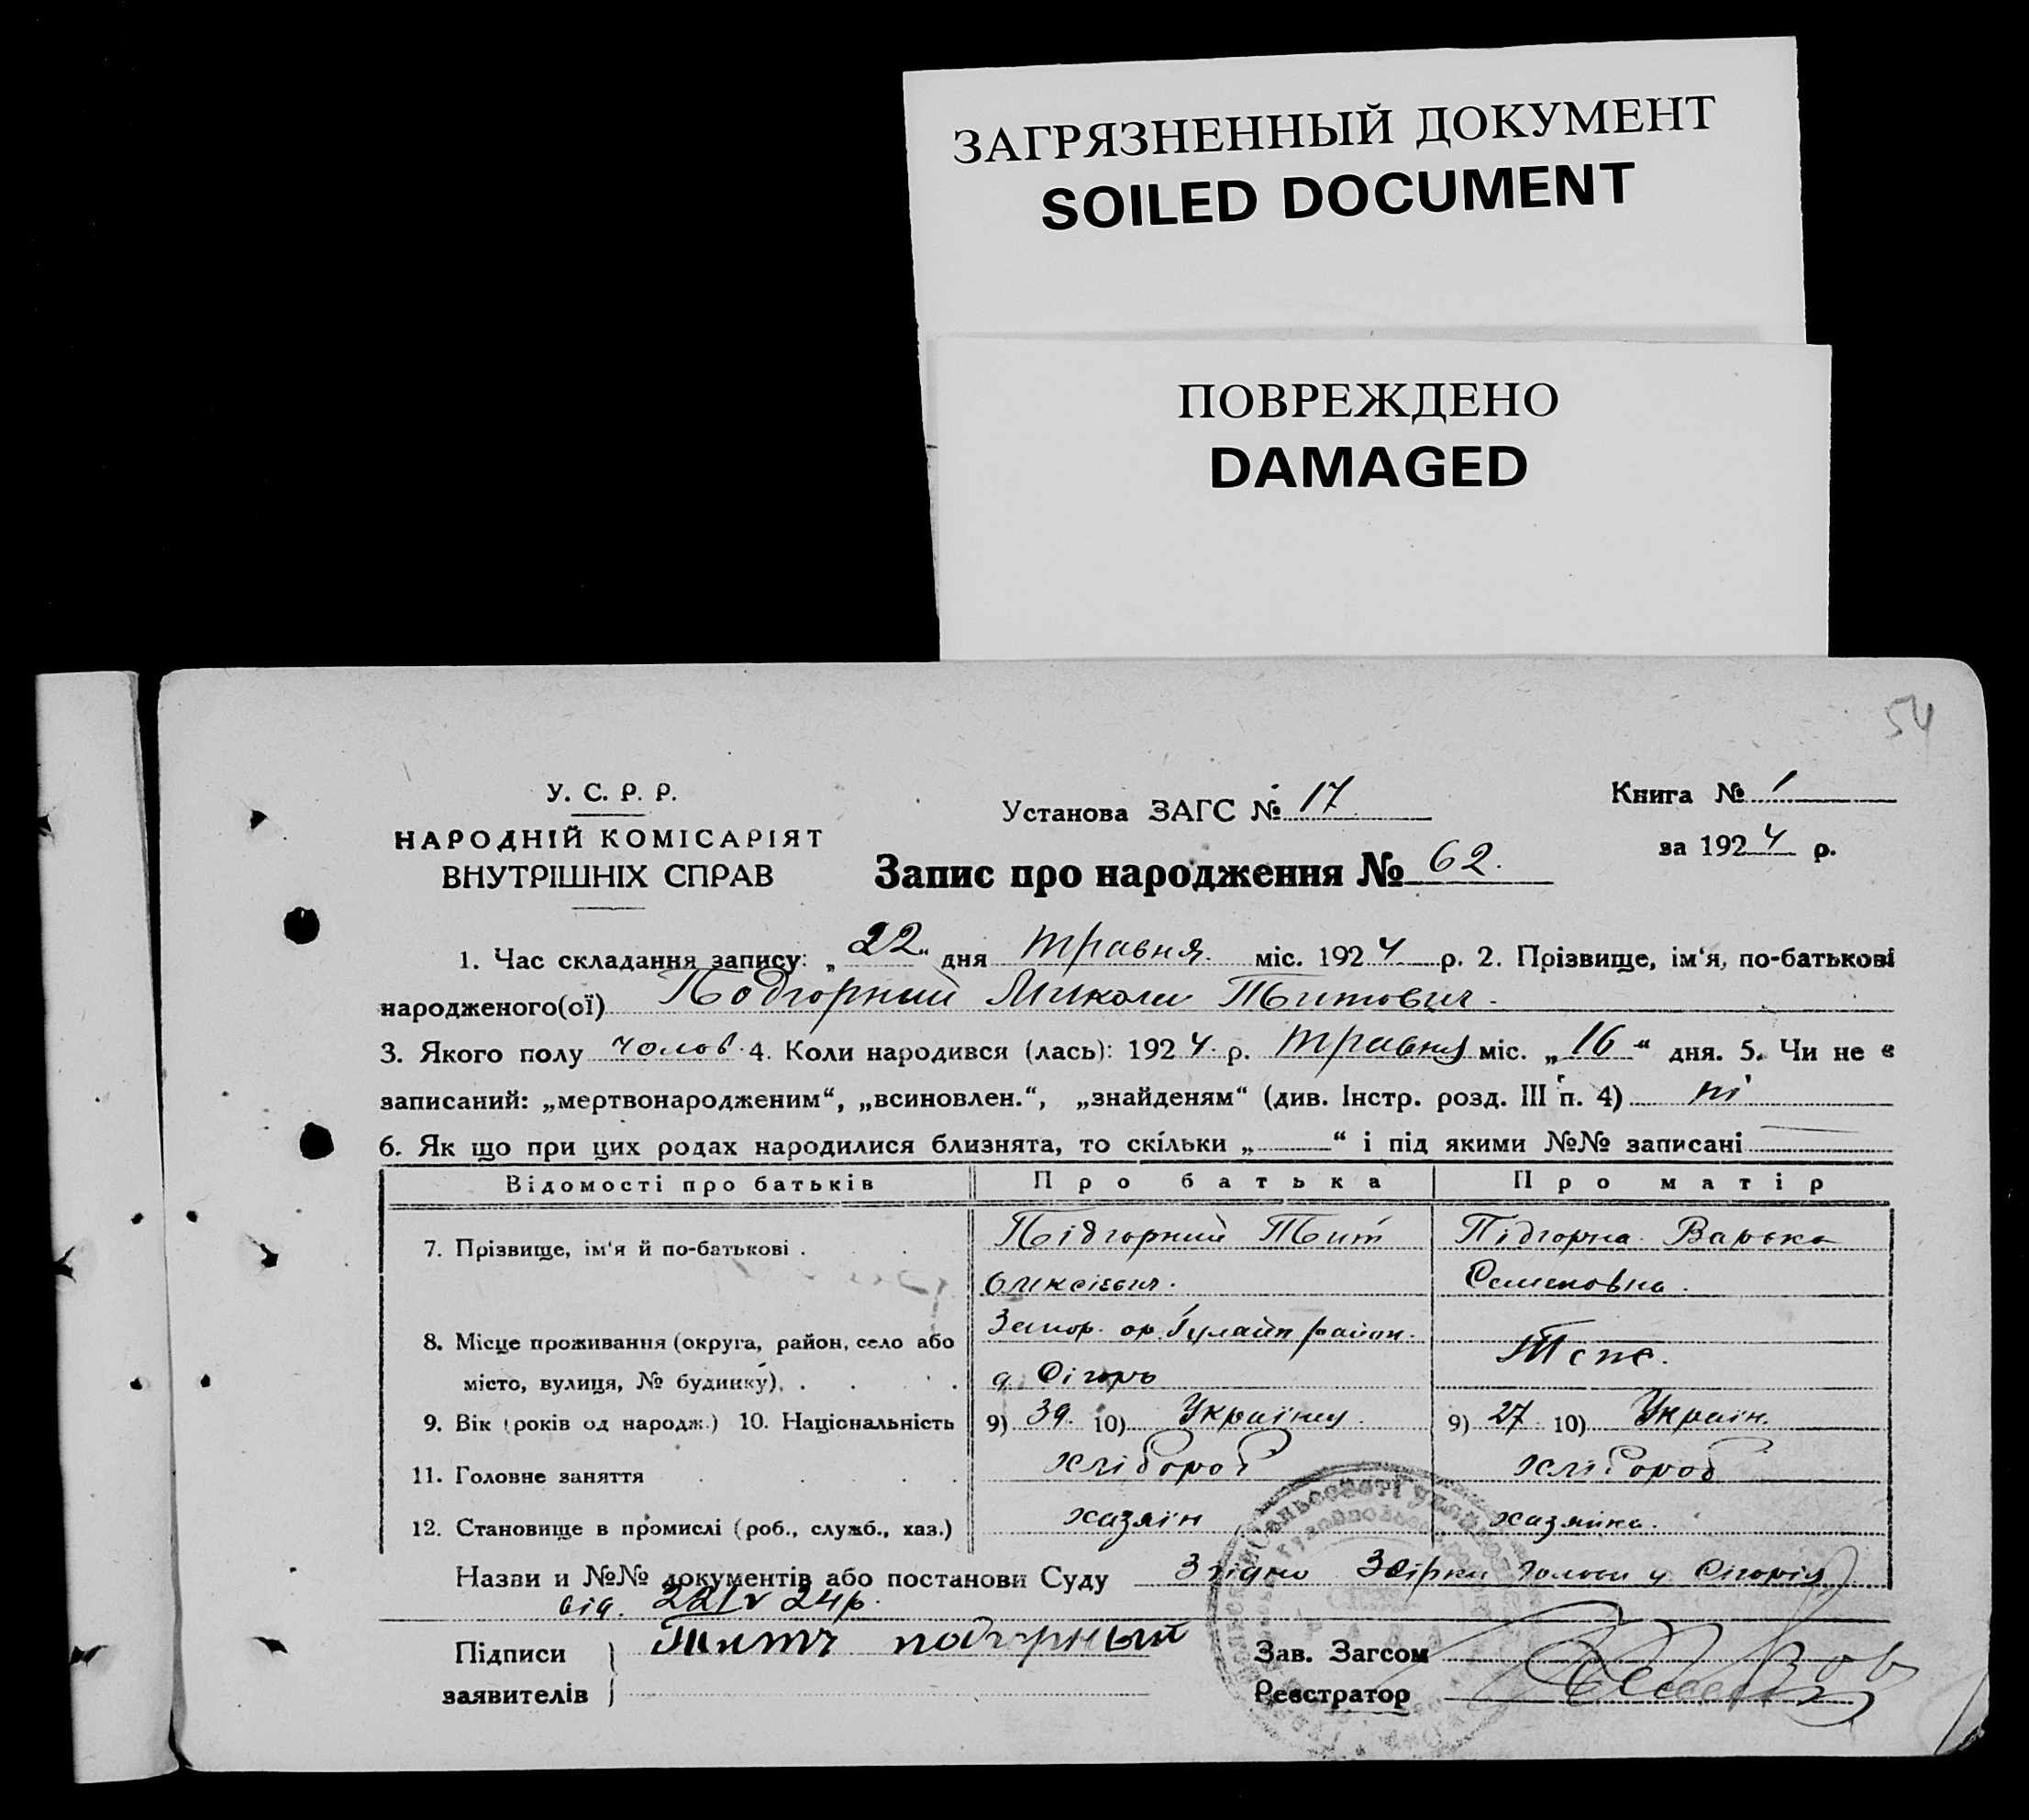 ЗАГРЯЗНЕННЫЙ ДОКУМЕНТ
SOILED DOCUMENT
ПОВРЕЖДЕНО
DAMAGED
54
У. С. Р. Р.
НАРОДНІЙ КОМІСАРІЯТ
ВНУТРІШНІХ СПРАВ
Установа ЗАГС № 17
Запис про народження № 62.
Книга № 1
за 1924 р.
1. Час складання запису: „22“ дня травня міс. 1924 р. 2. Прізвище, ім‘я, по-батькові
народженого(ої) Подгорний Микола Титович.
3. Якого полу чолов. 4. Коли народився (лась): 1924 р. травня міс. „16“ дня. 5. Чи не є
записаний: „мертвонародженим“, „всиновлен.“, „знайденям“ (див. Інстр. розд. III п. 4) ні
6. Як що при цих родах народилися близнята, то скільки „ “ і під якими №№ записані
Відомості про батьків Про батька Про матір
7. Прізвище, ім‘я й по-батькові . Підгорний Тит Підгорна Варька
Олексієвич. Семеновна.
8. Місце проживання (округа, район, село або Запор. ор. Гуляйп район.
місто, вулиця, № будинку). Теж.
9. Вік (років од народж.) 10. Національність 9) 39. 10) Українец 9) 27. 10) Україн.
11. Головне заняття хлібороб хлібороб
12. Становище в промислі (роб., служб., хаз.) хазяін хазяйка.
Назви и №№ документів або постанови Суду Згідно
від. 22/V 24р.
Підписи Титъ подгорный
заявителів
Зав. Загсом
Реєстратор